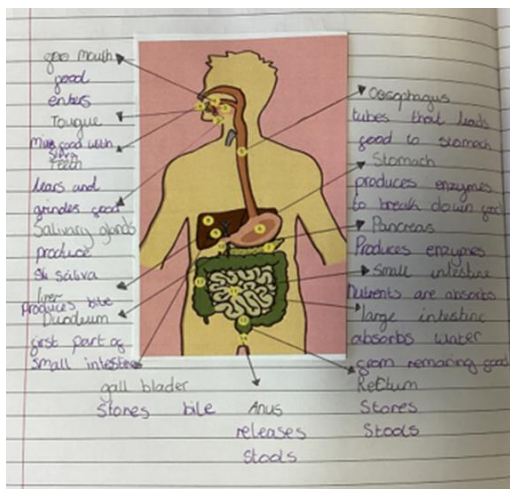 mouth
food
enters
Tongue
Mixes food with
Saliva
Teeth
tears and
grindes food
Salivary glands
produce
saliva
liver
Produces bile
Duodeum
first part of
small intestine
gall blader
Stores bile
Anus
releases
Stools
Oesophagus
tubes that leads
food to stomach
Stomach
produces enzymes
to break down food
Pancreas
Produces enzymes
Small intestine
Nutrients are absorbs
large intestine
absorbs water
from remaring food
Rectum
Stores
Stools